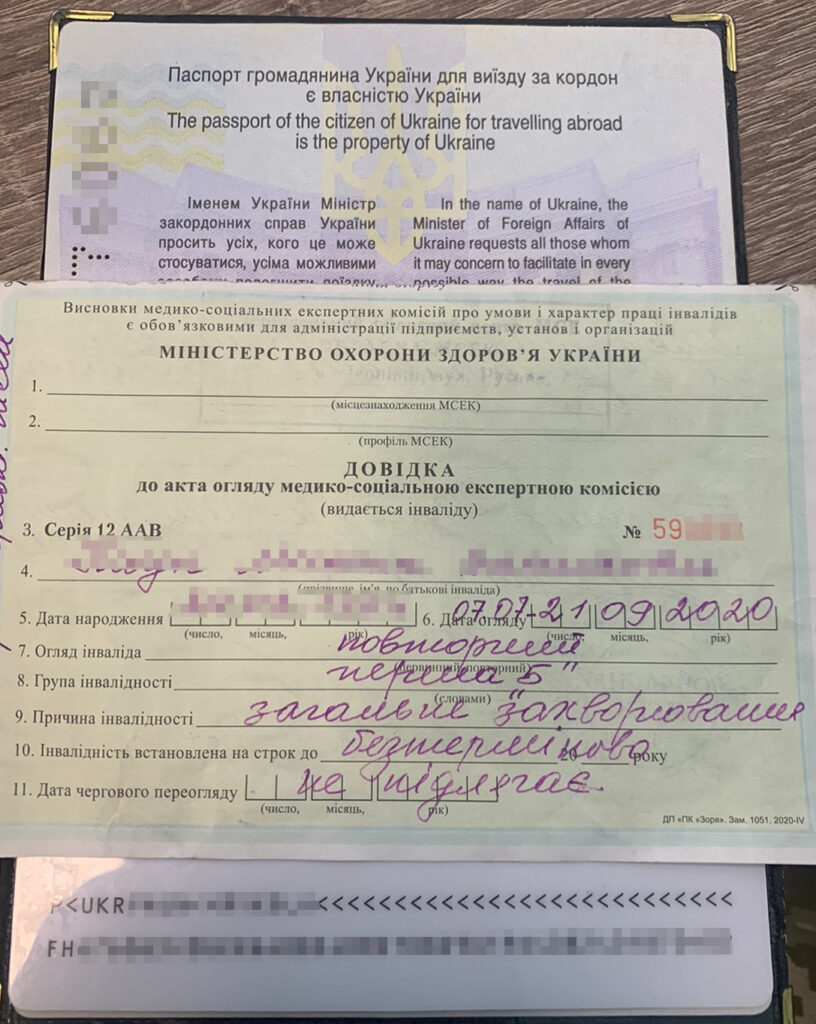 Паспорт громадянина України для виїзду за кордон
є власністю України
The passport of the citizen of Ukraine for travelling abroad
is the property of Ukraine
Іменем України Міністр
закордонних справ України
просить усіх, кого це може
стосуватися, усіма можливими
In the name of Ukraine, the
Minister of Foreign Affairs of
Ukraine requests all those whom
it may concern to facilitate in every
possible way the travel of the
Висновки медико-соціальних експертних комісій про умови і характер праці інвалідів
є обов'язковими для адміністрації підприємств, установ і організацій
МІНІСТЕРСТВО ОХОРОНИ ЗДОРОВ'Я УКРАЇНИ
1.
(місцезнаходження МСЕК)
2.
(профіль МСЕК)
ДОВІДКА
до акта огляду медико-соціальною експертною комісією
(видається інваліду)
3. Серія 12 ААВ № 59
4.
(прізвище, ім'я, по батькові інваліда)
5. Дата народження 6. Дата огляду 07.07-21 09 2020
(число, місяць, рік) (число, місяць, рік)
7. Огляд інваліда повторний
(первинний, повторний)
8. Група інвалідності перша "Б"
(словами)
9. Причина інвалідності загальне захворювання
10. Інвалідність встановлена на строк до безтерміново 20 року
11. Дата чергового переогляду не підлягає.
(число, місяць, рік)
ДП «ПК «Зоря». Зам. 1051. 2020-IV
P<UKR <<<<<<<<<<<<<<<<<<<<<<<<<
FH